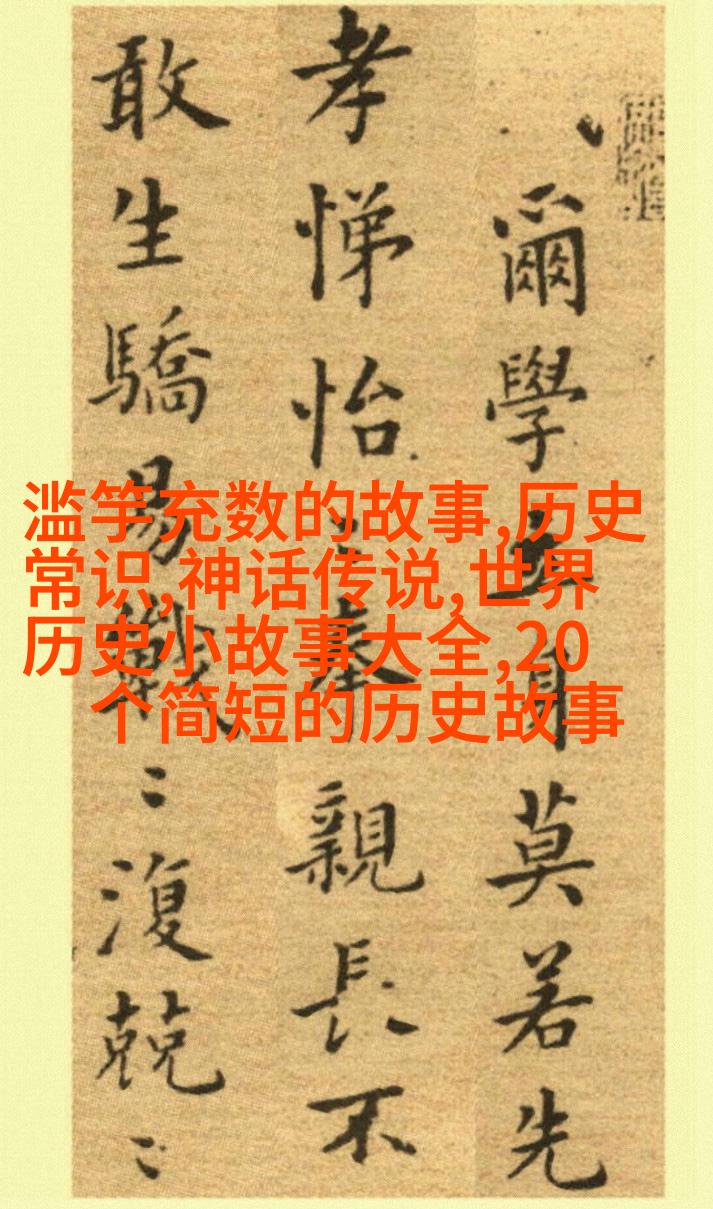 滥竽充数的故事,历史
常识,神话传说,世界
历史小故事大全,20
个简短的历史故事
爾學立身莫若先
孝悌怡〻奉親長不
敢生驕易戰〻復兢〻